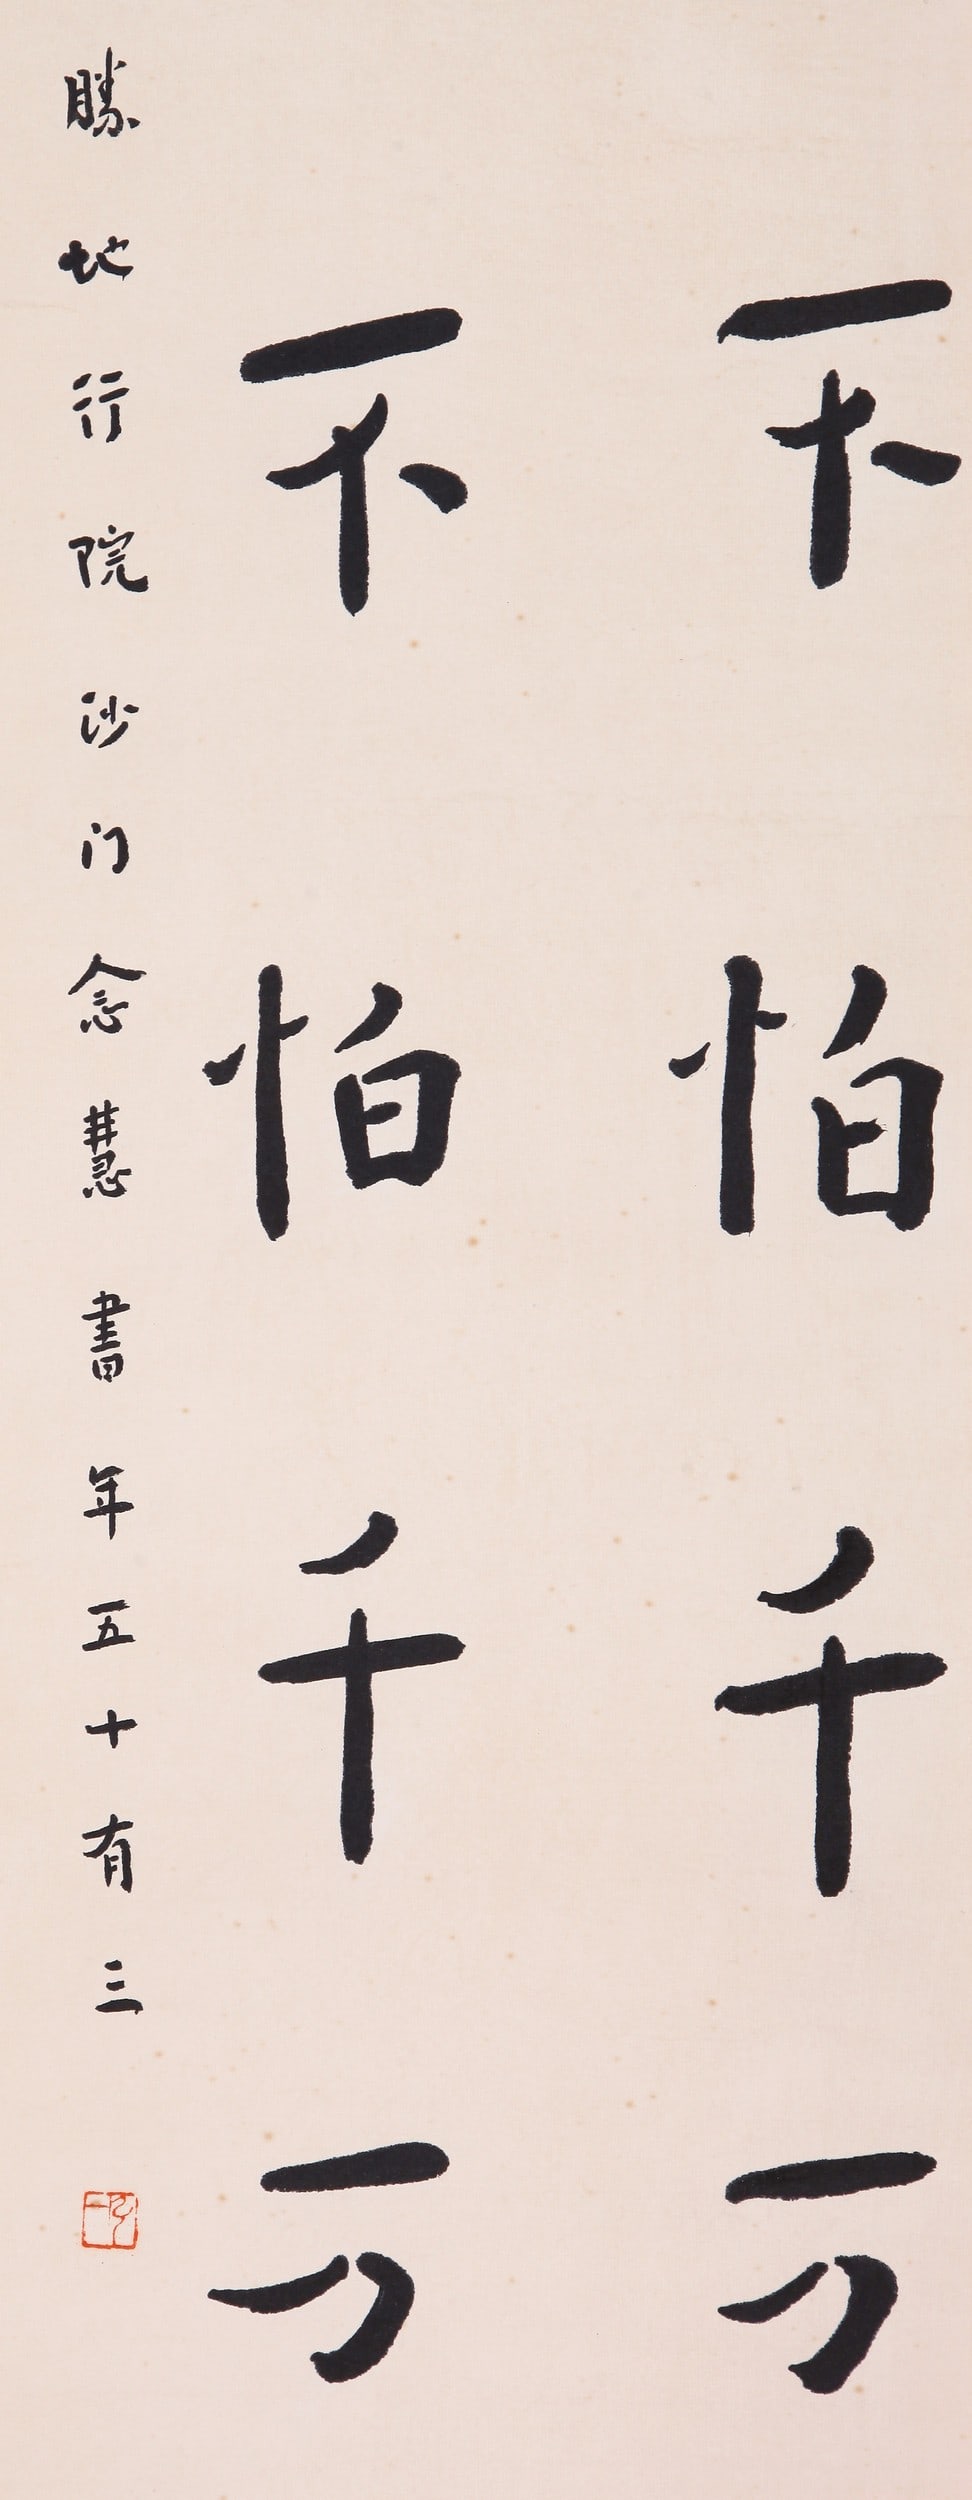 不怕千万
不怕千万
勝地行院沙门念慧書年五十有三